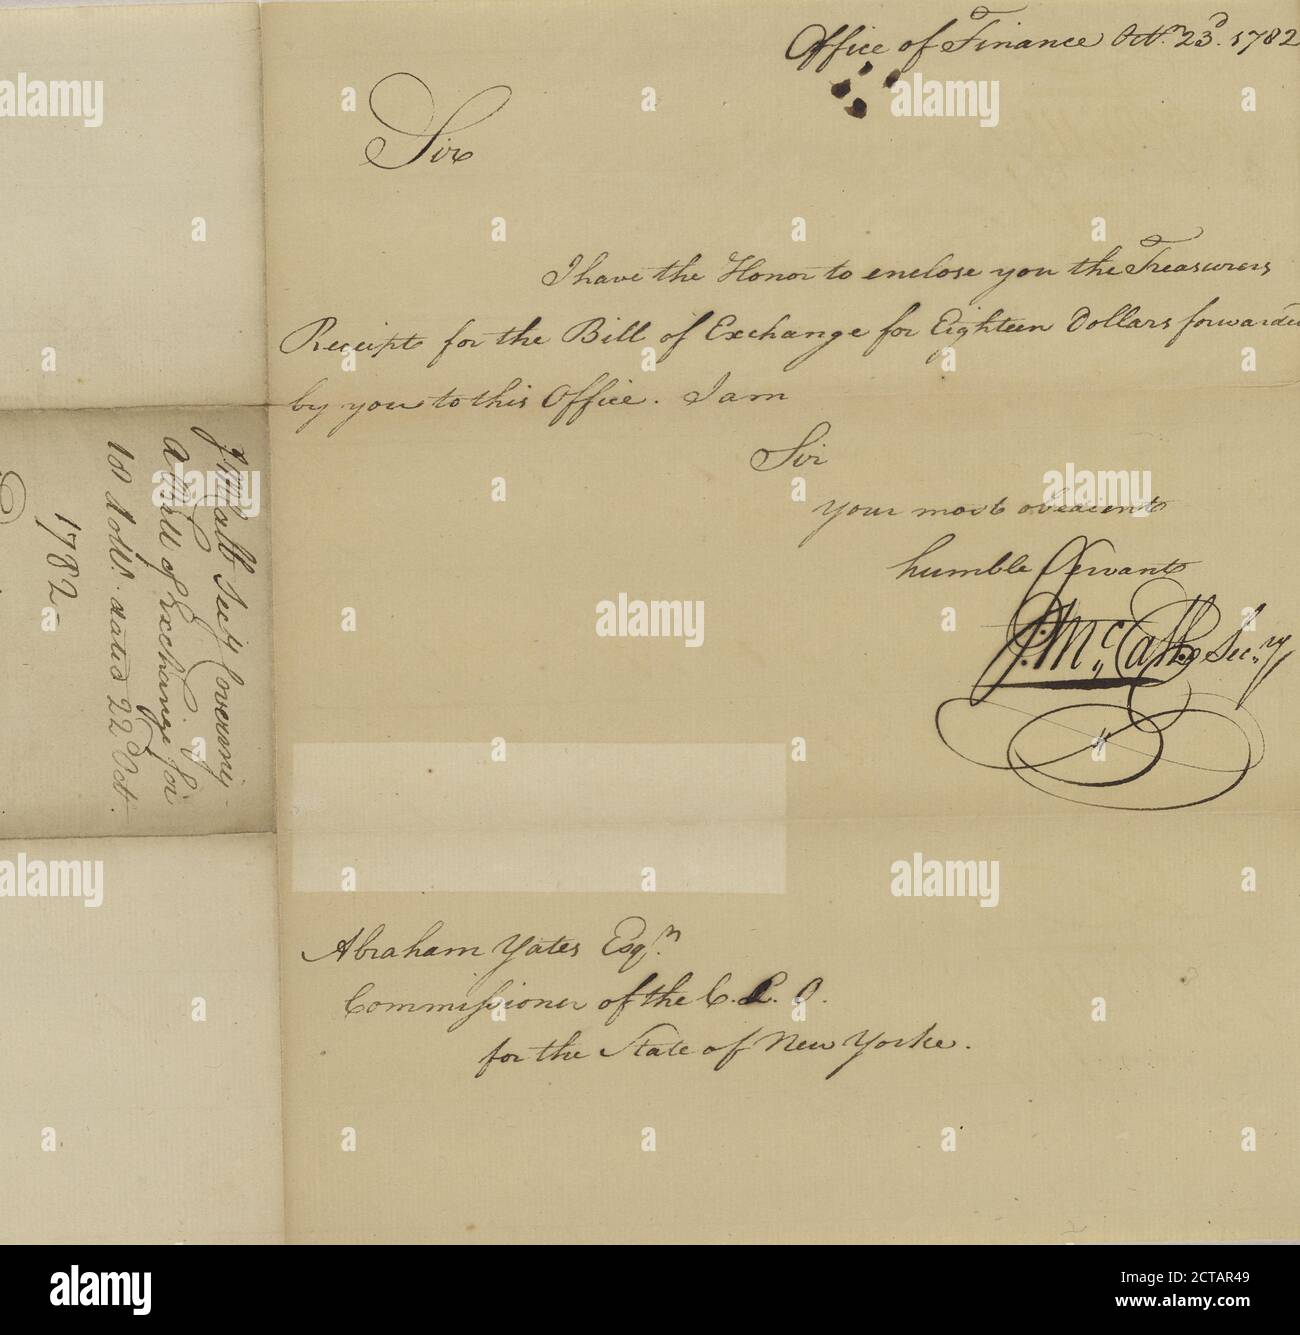 Office of Finance Octr. 23d. 1782
Sir
I have the Honor to enclose you the Treasurers
Receipt for the Bill of Exchange for Eighteen Dollars forwarded
by you to this Office. I am
Sir
your most obedient
humble Servant
J. McCall Secy
Abraham Yates Esqr.
Commissioner of the C. L. O.
for the State of New Yorke.
J McCall Secy Covering
a Bill of Exchange for
18 dolls. dated 22 Oct.
1782-
alamy
Image ID: 2CTAR49
www.alamy.com